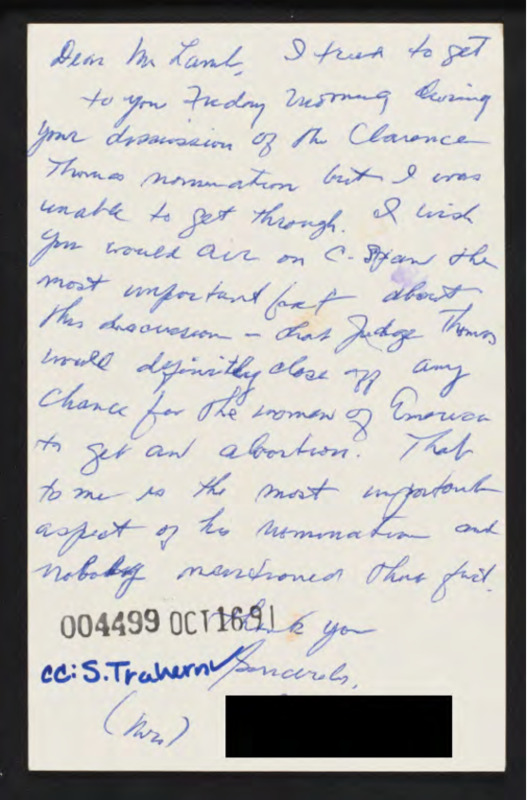 Dear Mr Lamb, I tried to get
to you Friday morning during
your disscussion of the Clarence
Thomas nomination but I was
unable to get through. I wish
you would air on C-Span the
most important fact about
this discussion - that Judge Thomas
would definitly close off any
chance for the women of America
to get an abortion. That
to me is the most important
aspect of his nomination and
nobody mentioned that fact.
004499 OCT 16 91
Thank you
cc: S. Trahern
Sincerely,
(Mrs)